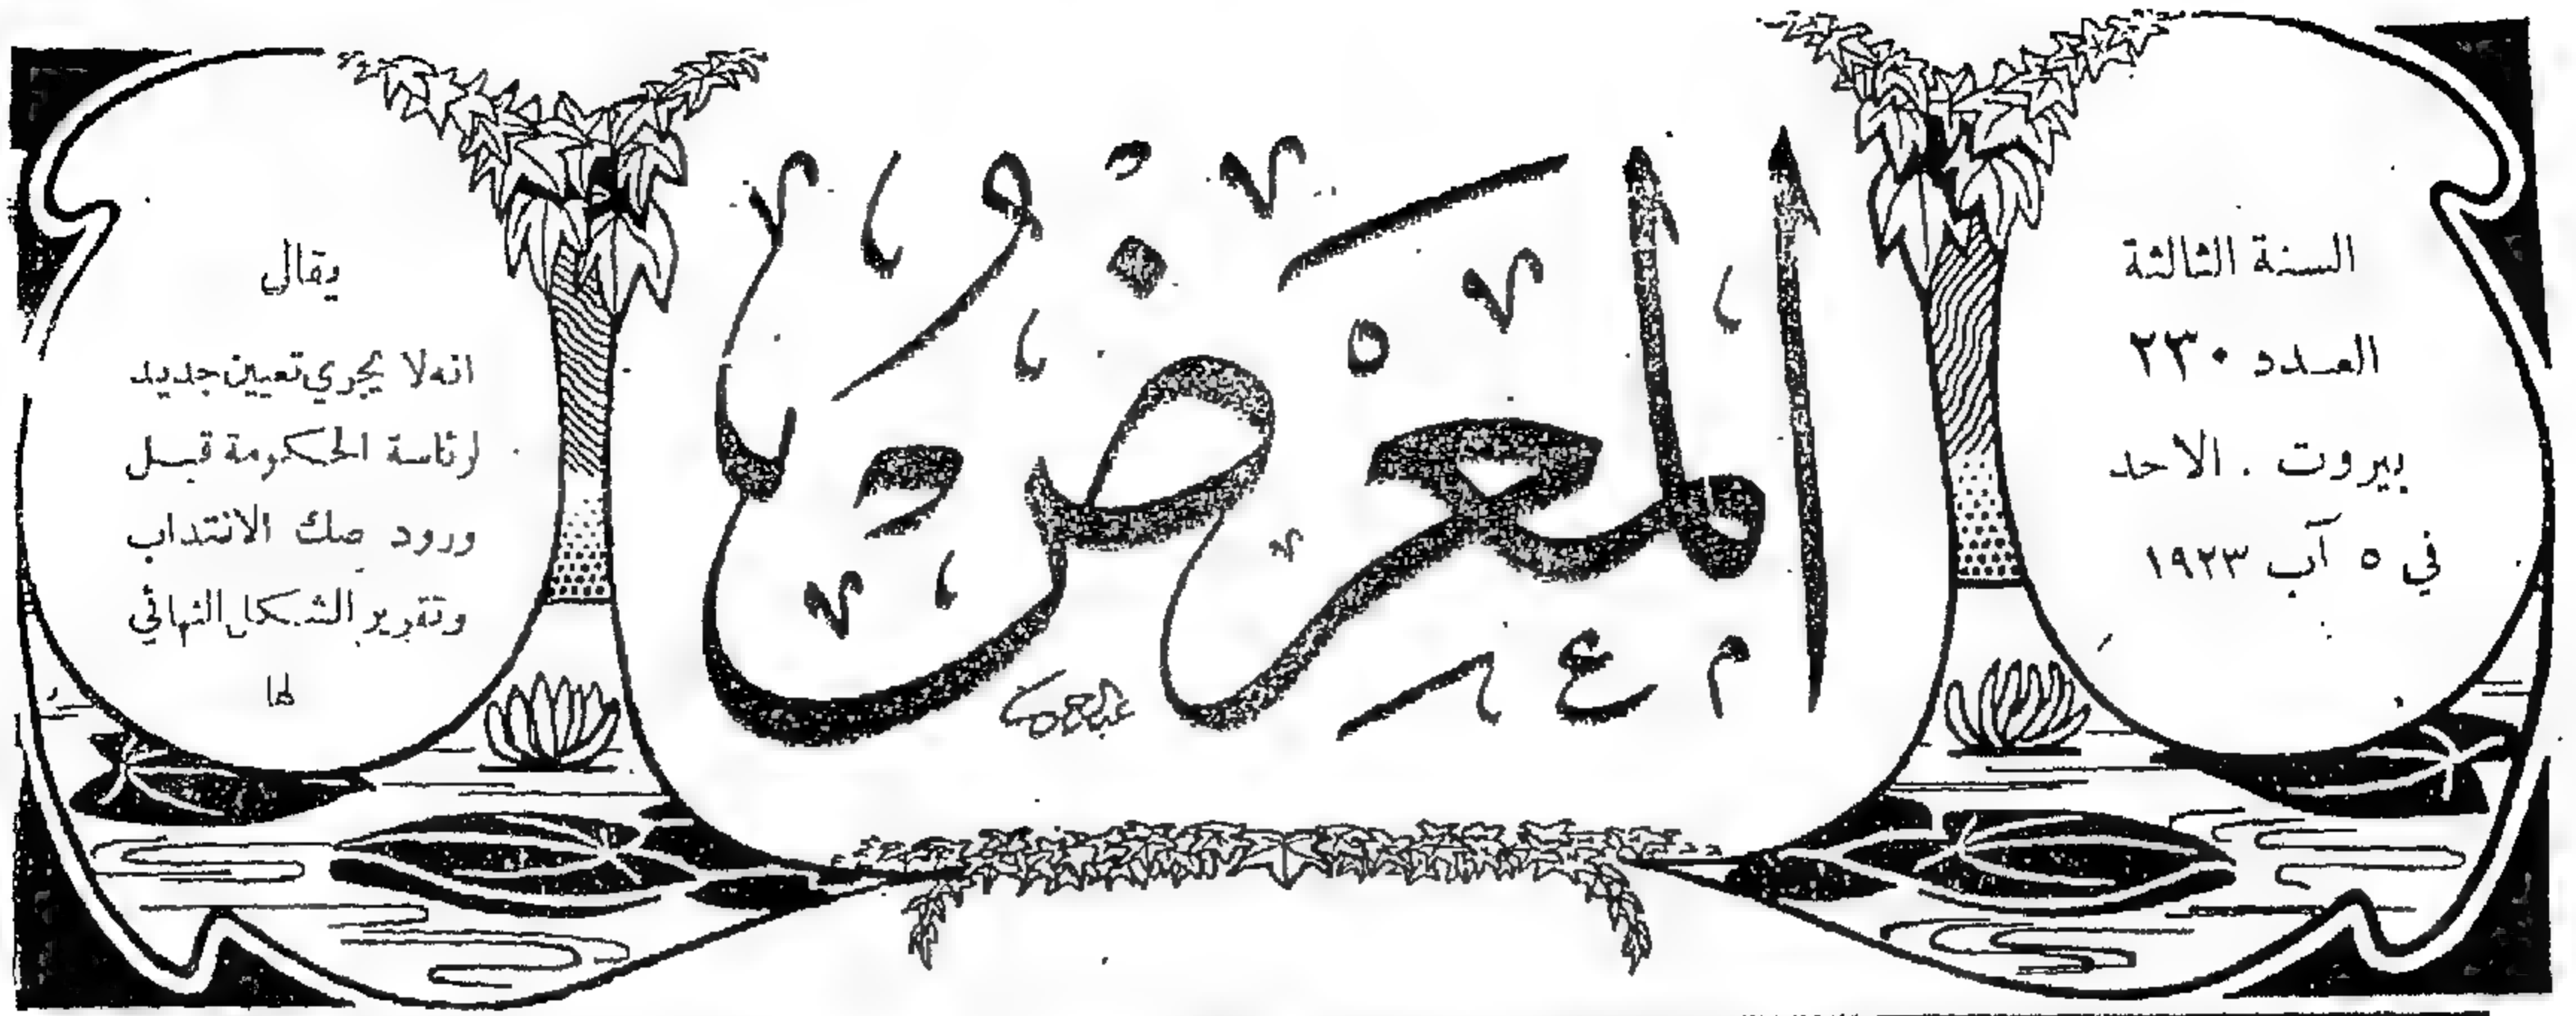 السنة الثالثة
العدد ٢٣٠
بيروت . الاحد
في ٥ آب ١٩٢٣
المعرض
يقال
انه لا يجري تعيين جديد
لرئاسة الحكومة قبل
ورود صك الانتداب
وتقرير الشكل النهائي
لها